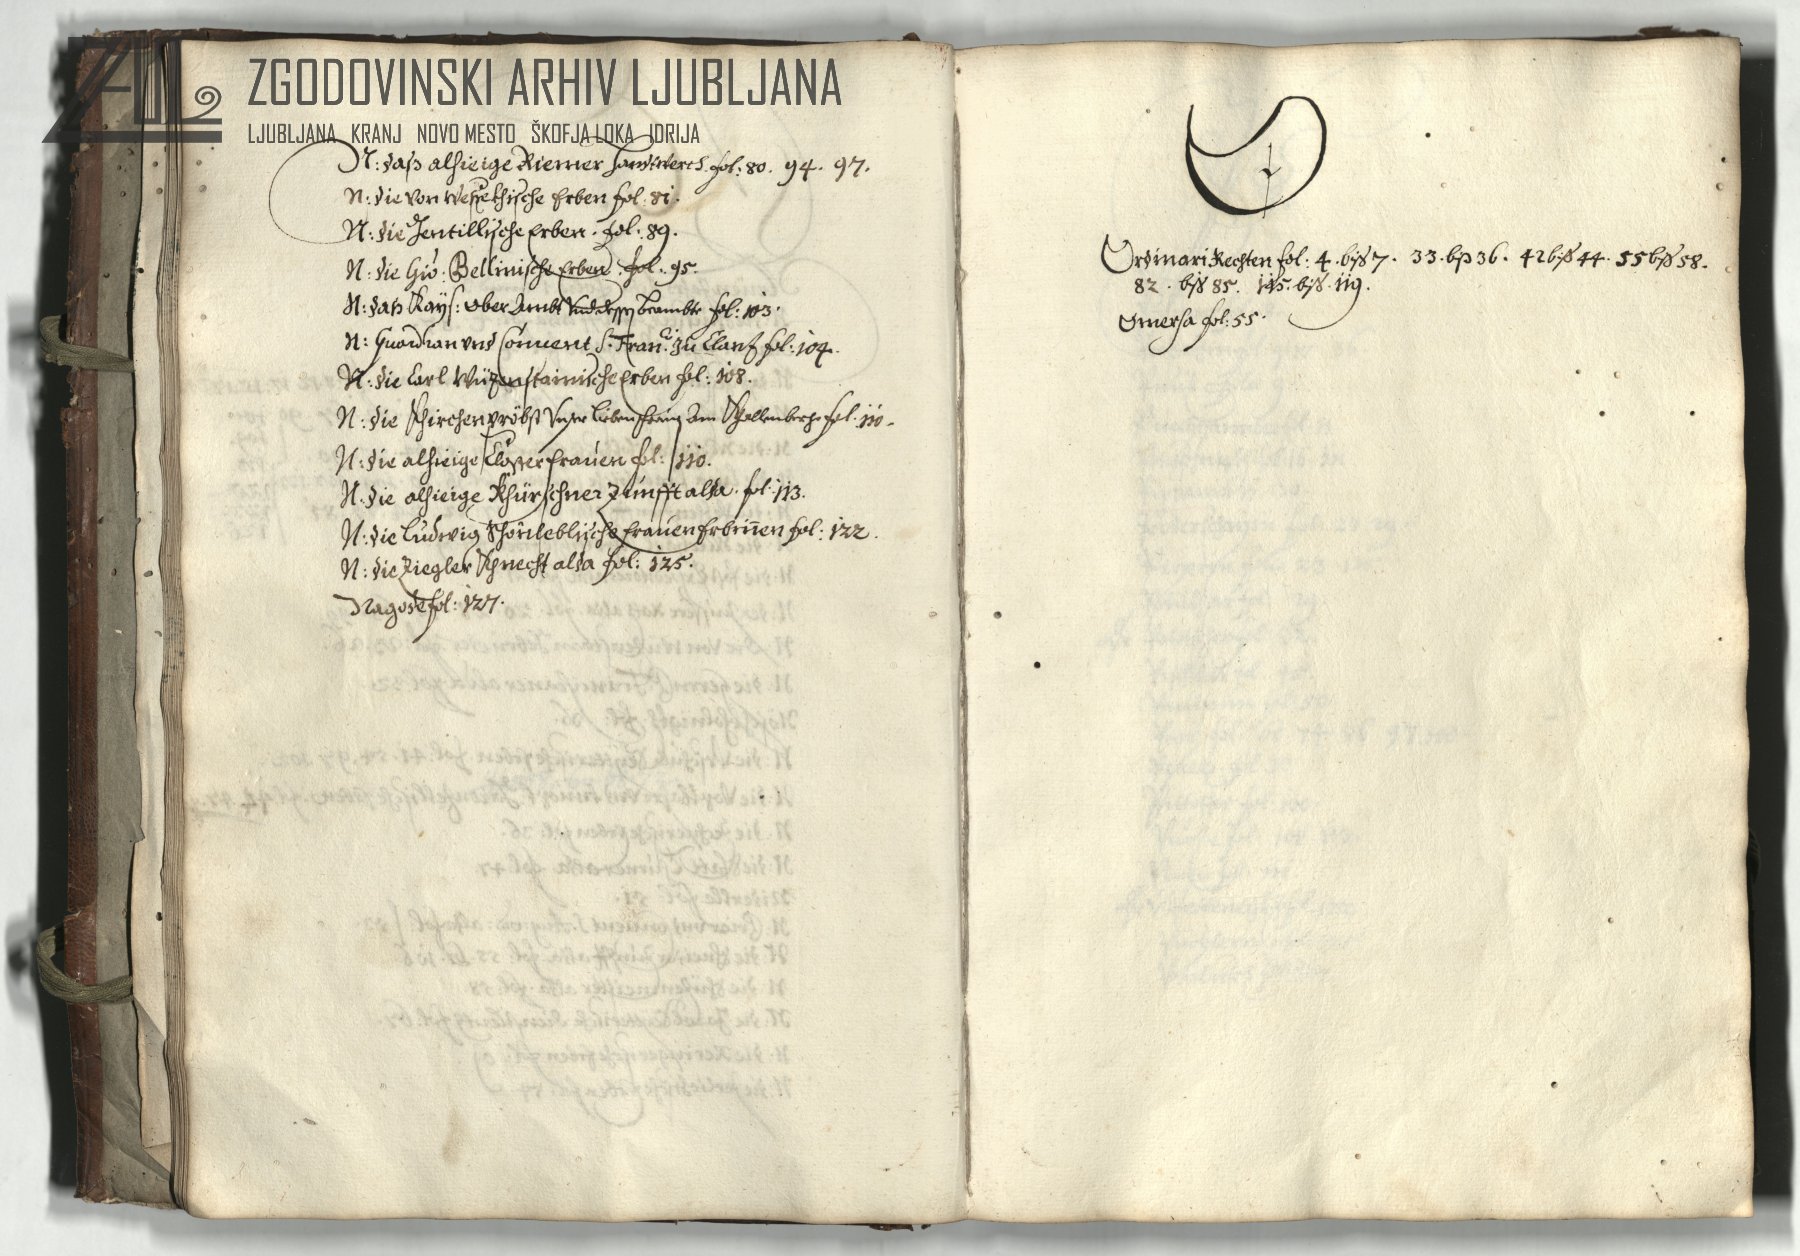 ZGODOVINSKI ARHIV LJUBLJANA
LJUBLJANA KRANJ NOVO MESTO ŠKOFJA LOKA IDRIJA
N: daß alhieige Riemer handtwerch fol: 80. 94. 97.
N: die von Erben fol: 81.
N: die Jentillische Erben. fol: 89.
N: die Gio: Bellinische Erben fol: 95.
N: daß Kays: ober Ambt fol: 103.
N: Guardian und Conuent S: Fran: zu fol: 104.
N: die Carl Erben fol: 108.
N: die Khirchenpröbst Unser lieben frauen am fol: 110.
N: die alhieige Closter frauen fol: 110.
N: die alhieige Khürschner Zunfft alda. fol: 113.
N: die Ludwig Schönleblische frauen Erbinen fol: 122.
N: die Ziegler Khnecht alda fol: 125.
Nagode fol: 127.
O
Ordinari Rechten fol: 4. biß 7. 33. biß 36. 42 biß 44. 55 biß 58.
82. biß 85. 115. biß. 119.
Omersa fol: 55.